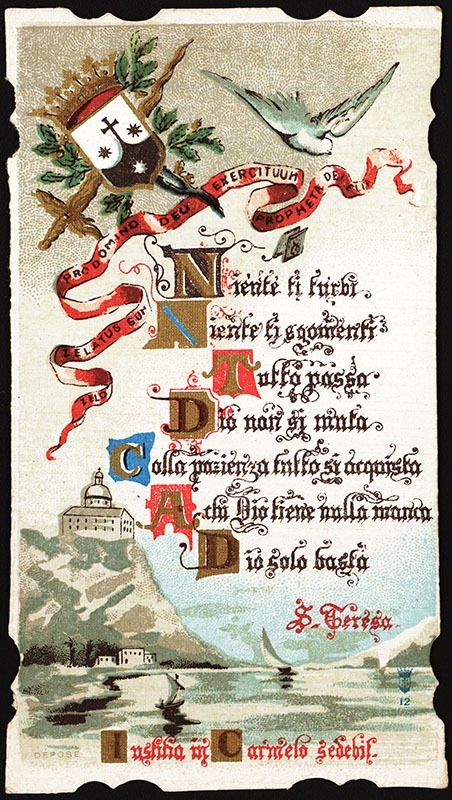 ZELO ZELATUS SUM PRO DOMINO DEO EXERCITUUM
PROPHETA DEI
Niente ti turbi
Niente ti sgomenti
Tutto passa
Dio non si muta
Colla pazienza tutto si acquista
A chi Dio tiene nulla manca
Dio solo basta
S. Teresa
12
Iustitia in Carmelo sedebit.
DEPOSE